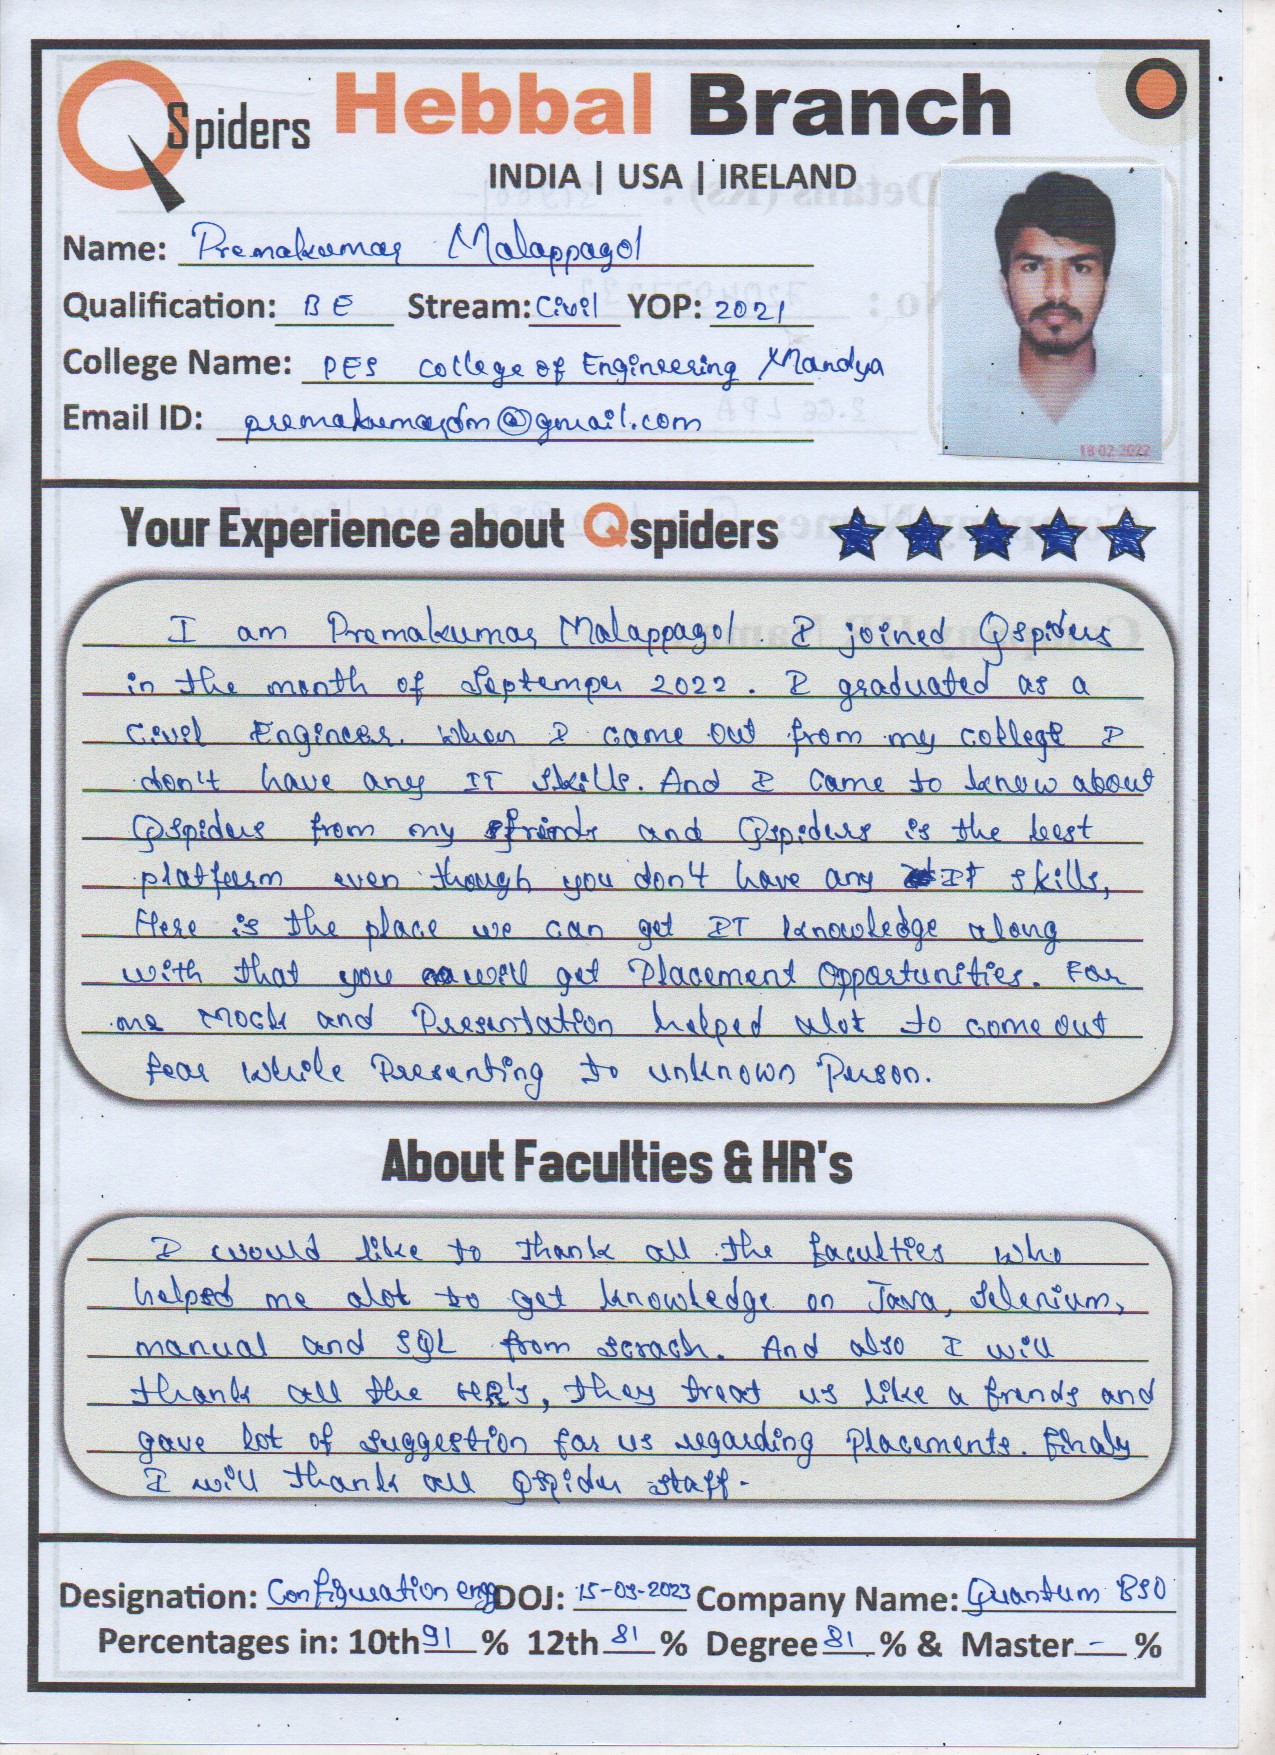 QSpiders Hebbal Branch
INDIA | USA | IRELAND
Name: Premakumar Malappagol
Qualification: BE Stream: Civil YOP: 2021
College Name: PES College of Engineering Mandya
Email ID: premakumardm@gmail.com
18-02-2022
Your Experience about Qspiders
I am Premakumar Malappagol. I joined Qspiders
in the month of Septemper 2022. I graduated as a
Civil Engineer. When I came out from my college I
don't have any IT skills. And I came to know about
Qspiders from my frinds and Qspiders is the best
platform even though you don't have any IT skills,
Here is the place we can get IT knowledge along
with that you will get Placement Opportunities. For
me Mock and Presentation helped alot to come out
fear while Presenting to unknown Person.
About Faculties & HR's
I would like to thank all the faculties who
helped me alot to get knowledge on Java, Selenium,
manual and SQL from scrach. And also I will
thank all the HR's, they treat us like a frends and
gave lot of suggestion for us regarding Placements. Finaly
I will thank all Qspider staff.
Designation: Configuration engg DOJ: 15-09-2023 Company Name: Quantum BSO
Percentages in: 10th 91 % 12th 81 % Degree 81 % & Master - %